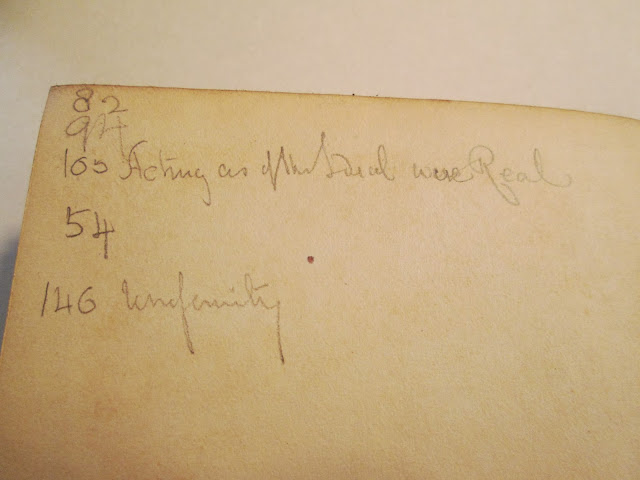 82
94
100 Acting as if the Ideal were Real
54
146 Uniformity